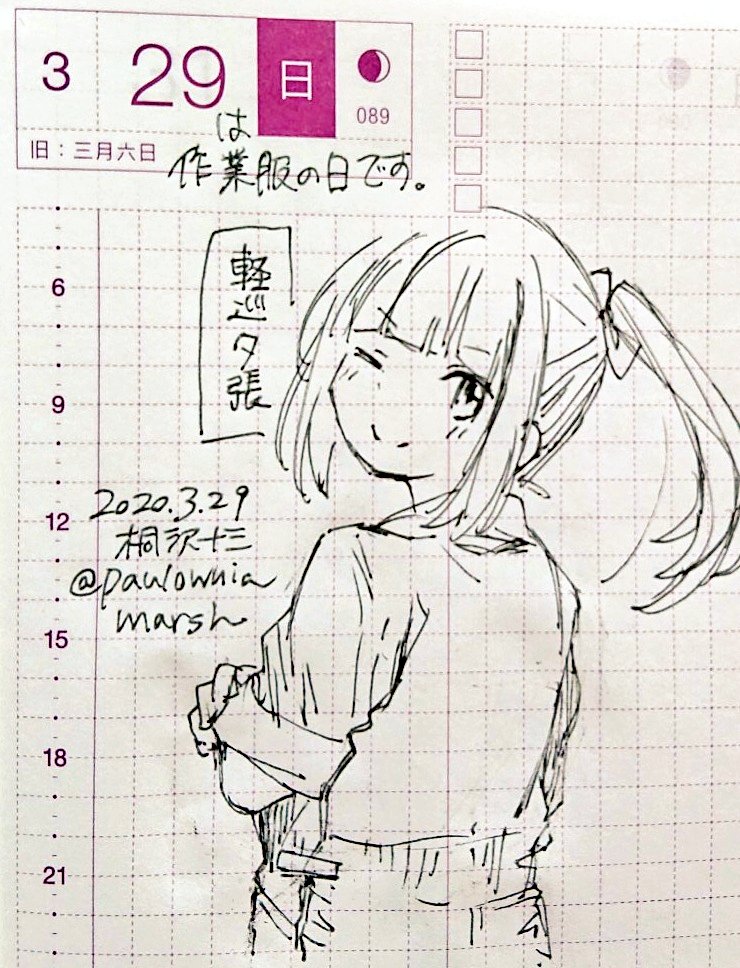 3 29 日
089
旧：三月六日
は
作業服の日です。
軽巡夕張
2020.3.29
桐沢十三
@paulownia
marsh
6
9
12
15
18
21